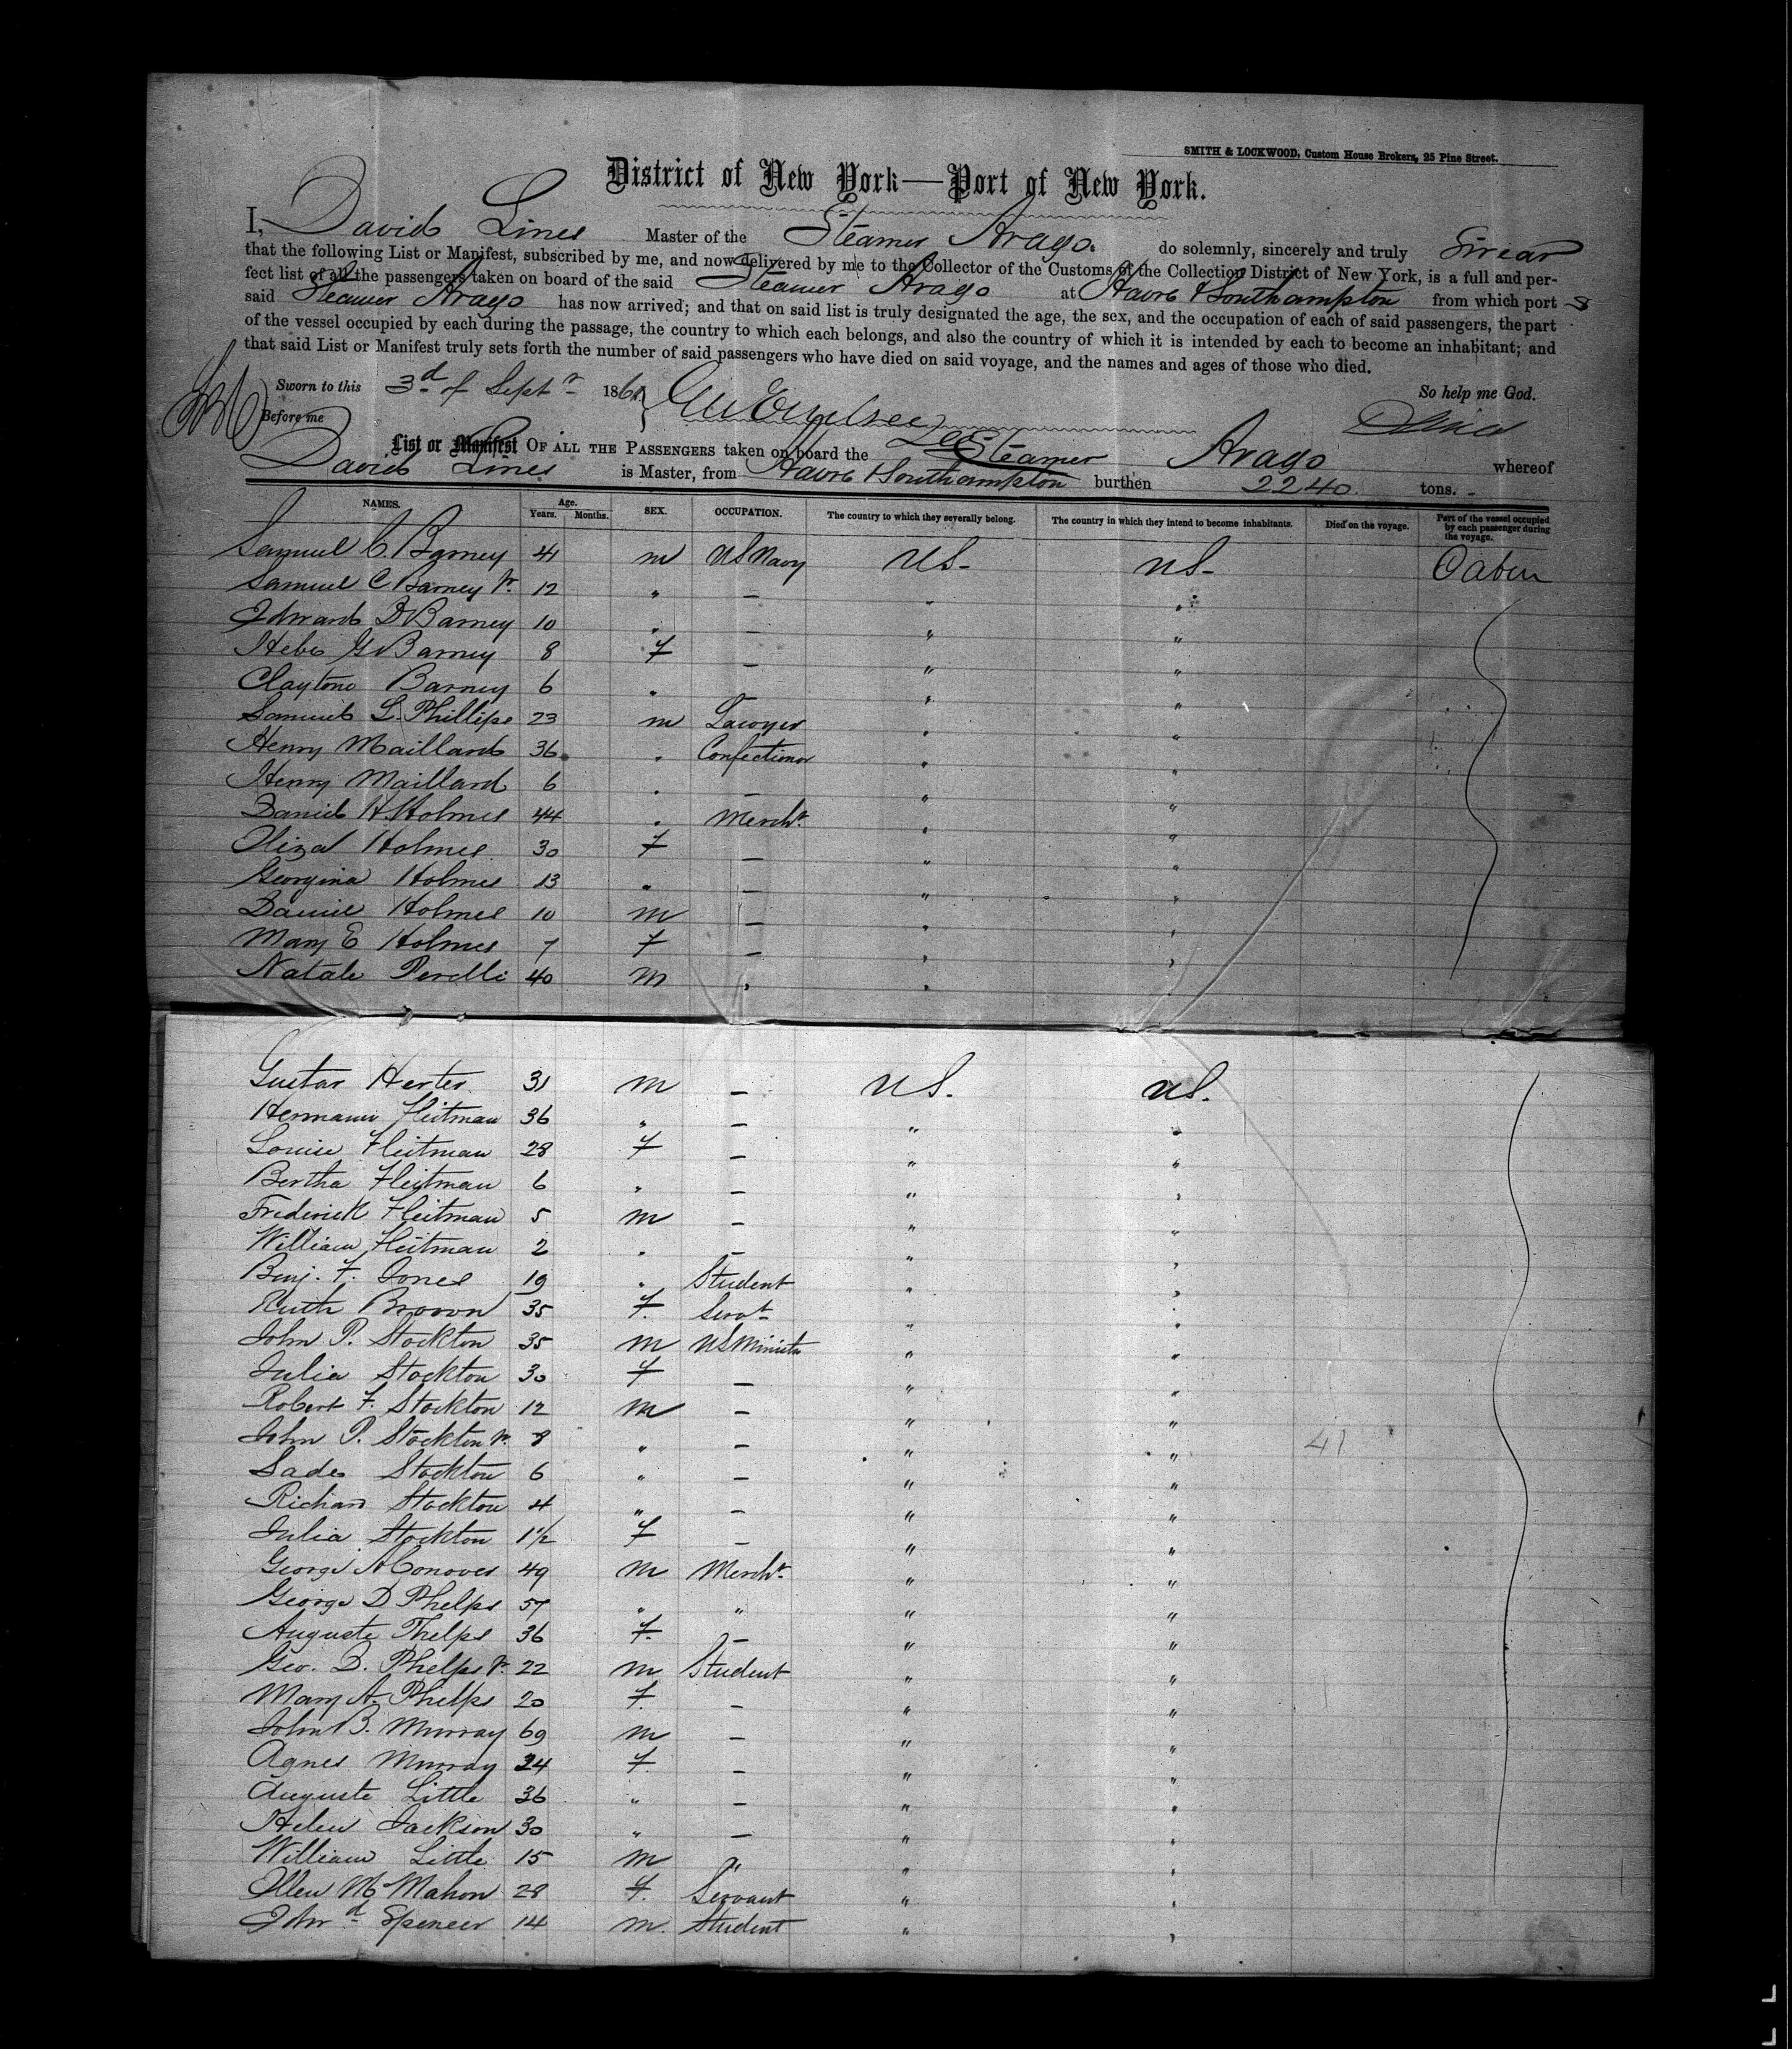 SMITH & LOCKWOOD, Custom House Brokers, 25 Pine Street.
District of New York—Port of New York.
I, David Lines Master of the Steamer Arago. do solemnly, sincerely and truly Swear
that the following List or Manifest, subscribed by me, and now delivered by me to the Collector of the Customs of the Collection District of New York, is a full and per-
fect list of all the passengers taken on board of the said Steamer Arago at Havre & Southampton from which port s
said Steamer Arago has now arrived; and that on said list is truly designated the age, the sex, and the occupation of each of said passengers, the part
of the vessel occupied by each during the passage, the country to which each belongs, and also the country of which it is intended by each to become an inhabitant; and
that said List or Manifest truly sets forth the number of said passengers who have died on said voyage, and the names and ages of those who died.
Sworn to this 3d of Septr 1861. So help me God.
Before me D Lines
List or Manifest OF ALL THE PASSENGERS taken on board the Steamer Arago whereof
David Lines is Master, from Havre & Southampton burthen 2240 tons.
NAMES. Age. Years. Months. SEX. OCCUPATION. The country to which they severally belong. The country in which they intend to become inhabitants. Died on the voyage. Part of the vessel occupied by each passenger during the voyage.
Samuel C. Barney 41 m US Navy US- US- Cabin
Samuel C Barney Jr. 12 " — " "
Edward B Barney 10 " — " "
Hebe G Barney 8 F — " "
Claytone Barney 6 " " "
Samuel L. Phillips 23 m Lawyer " "
Henry Maillard 36 " Confectioner " "
Henry Maillard 6 " — " "
Daniel H. Holmes 44 " Mercht. " "
Eliza Holmes 30 F — " "
Georgina Holmes 13 " — " "
Daniel Holmes 10 m — " "
Mary E Holmes 7 F — " "
Natale Perelli 40 m " "
Gustav Herter 31 m — US. US.
Hermann Fleitman 36 " — " "
Louise Fleitman 28 F — " "
Bertha Fleitman 6 " — " "
Frederick Fleitman 5 m — " "
William Fleitman 2 " — " "
Benj. F. Jones 19 " Student " "
Ruth Brown 35 F. Servt " "
John P. Stockton 35 m US Minister " "
Julia Stockton 30 F — " "
Robert F. Stockton 12 m — " "
John P. Stockton Jr. 8 " — " " 41
Sade Stockton 6 " — " "
Richard Stockton 4 " — " "
Julia Stockton 1 1/2 F — " "
George A Conover 49 m Mercht. " "
George D Phelps 57 " " " "
Auguste Phelps 36 F. — " "
Geo. D. Phelps Jr. 22 m Student " "
Mary A. Phelps 20 F. — " "
John B. Murray 69 m — " "
Agnes Murray 24 F. — " "
Auguste Little 36 " — " "
Helen Jackson 30 " — " "
William Little 15 m " " "
Ellen Mc Mahon 28 F. Servant " "
Edwd Spencer 14 m. Student " "